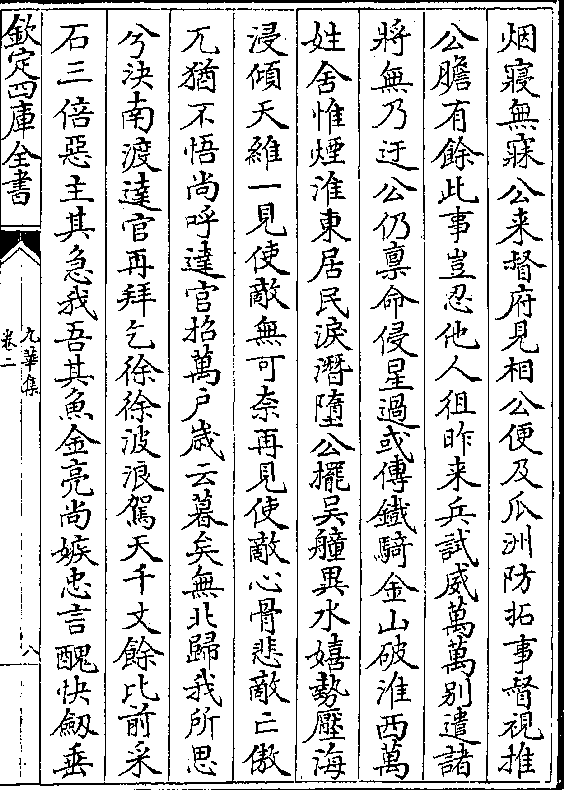 烟寢無寐公来督府見相公便及瓜洲防拓事督視推
公膽有餘此事豈忍他人徂昨来兵試威萬萬别遣諸
將無乃迂公仍稟命侵星過或傳鐵騎金山破淮西萬
姓舍惟煙淮東居民淚潛墮公擺吴艟異水嬉勢壓海
浸傾天維一見使敵無可奈再見使敵心骨悲敵亡傲
兀猶不悟尚呼達官招萬户歳云暮矣無北歸我所思
兮決南渡達官再拜乞徐徐波浪駕天千丈餘比前采
石三倍惡主其急我吾其魚金亮尚嫉忠言醜快劔垂
欽定四庫全書
九華集
卷二
八